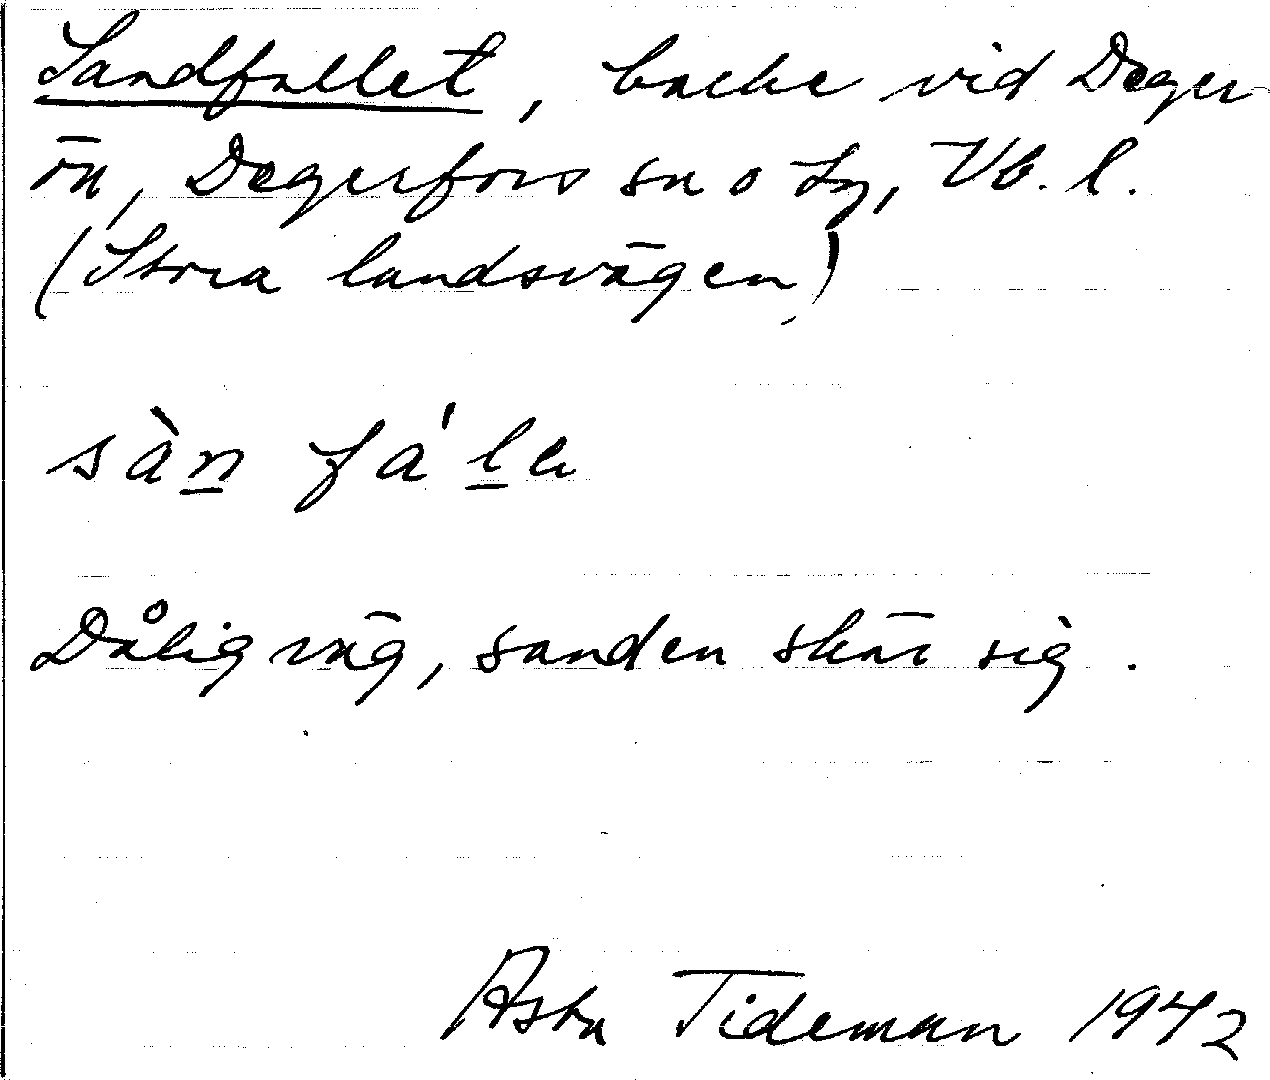 Sandfallet, backe vid Deger-
ön, Degerfors sn o tg, Vb. l.
(Stora landsvägen)
sàn fá'la
Dålig väg, sanden skär sig.
Asta Tideman 1942